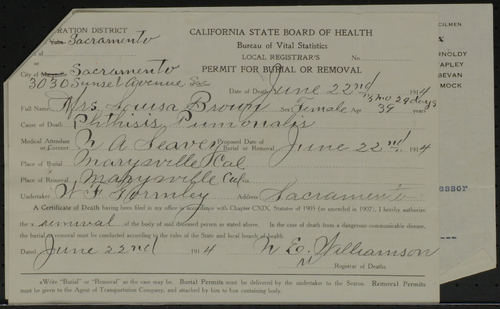 RATION DISTRICT
Sacramento
CALIFORNIA STATE BOARD OF HEALTH
Bureau of Vital Statistics
LOCAL REGISTRAR'S
No.
PERMIT FOR BURIAL OR REMOVAL
City of Sacramento
3030 Sunset Avenue
Date of Death June 22nd 1914
Full Name Mrs. Louisa Brown Sex Female Age 39 years
7 mo 29 days
Cause of Death Phthisis Pulmonalis
Medical Attendant or Coroner W A Seavey Proposed Date of Burial or Removal June 22nd 1914
Place of Burial Marysville Cal
Place of Removal Marysville Cal
Undertaker W F Gormley Address Sacramento
A Certificate of Death having been filed in my office in accordance with Chapter CXIX, Statutes of 1905 (as amended in 1907), I hereby authorize
the removal of the body of said deceased person as stated above. In the case of death from a dangerous communicable disease,
the burial or removal must be conducted according to the rules of the State and local boards of health.
Dated June 22nd 1914
W E Williamson
Registrar of Deaths.
Write "Burial" or "Removal" as the case may be. Burial Permits must be delivered by the undertaker to the Sexton. Removal Permits
must be given to the Agent of Transportation Company, and attached by him to box containing body.
CILMEN
NNOLDY
TAPLEY
BEVAN
MOCK
essor